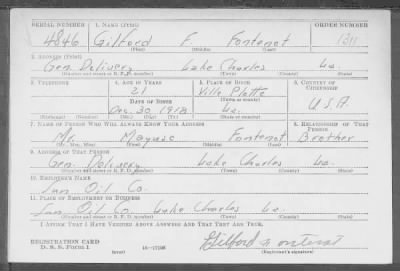 SERIAL NUMBER 1. NAME (Print) ORDER NUMBER
4846 Gilford F. Fontenot 1311
(First) (Middle) (Last)
2. ADDRESS (Print)
Gen. Delivery Lake Charles La.
(Number and street or R. F. D. number) (Town) (County) (State)
3. TELEPHONE 4. AGE IN YEARS 5. PLACE OF BIRTH 6. COUNTRY OF CITIZENSHIP
21 Ville Platte
DATE OF BIRTH (Town or county)
Dec. 30 1918 La. U.S.A.
(Exchange) (Number) (Mo.) (Day) (Yr.) (State or country)
7. NAME OF PERSON WHO WILL ALWAYS KNOW YOUR ADDRESS 8. RELATIONSHIP OF THAT PERSON
Mr. Fontenot Brother
(Mr., Mrs., Miss) (First) (Middle) (Last)
9. ADDRESS OF THAT PERSON
Gen. Delivery Lake Charles La.
(Number and street or R. F. D. number) (Town) (County) (State)
10. EMPLOYER'S NAME
Sun Oil Co.
11. PLACE OF EMPLOYMENT OR BUSINESS
Sun Oil Co. Lake Charles La.
(Number and street or R. F. D. number) (Town) (County) (State)
I AFFIRM THAT I HAVE VERIFIED ABOVE ANSWERS AND THAT THEY ARE TRUE.
REGISTRATION CARD
D. S. S. Form 1 (over) 16—17105 Gilford Fontenot
(Registrant's signature)